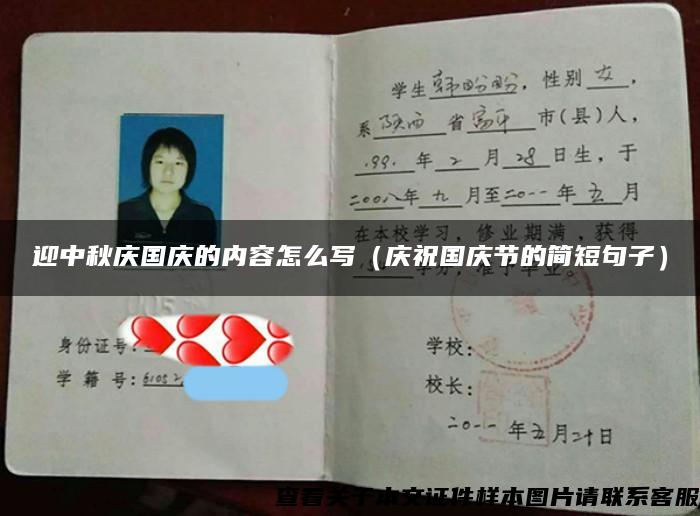 身份证号:
学 籍 号: 6105
学生 韩盼盼 , 性别 女 ,
系 陕西 省 富平 市(县)人,
1991 年 2 月 28 日生, 于
二00八 年 九 月至 二0一一 年 五 月
在本校学习, 修业期满, 获得
学分, 准予毕业。
迎中秋庆国庆的内容怎么写（庆祝国庆节的简短句子）
学校:
校长:
二0一一 年 五 月 二十 日
查看关于本文证件样本图片请联系客服